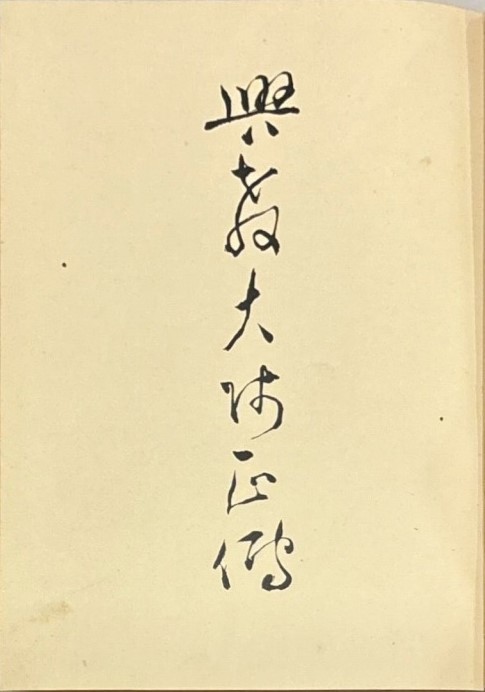 興教大師正傳